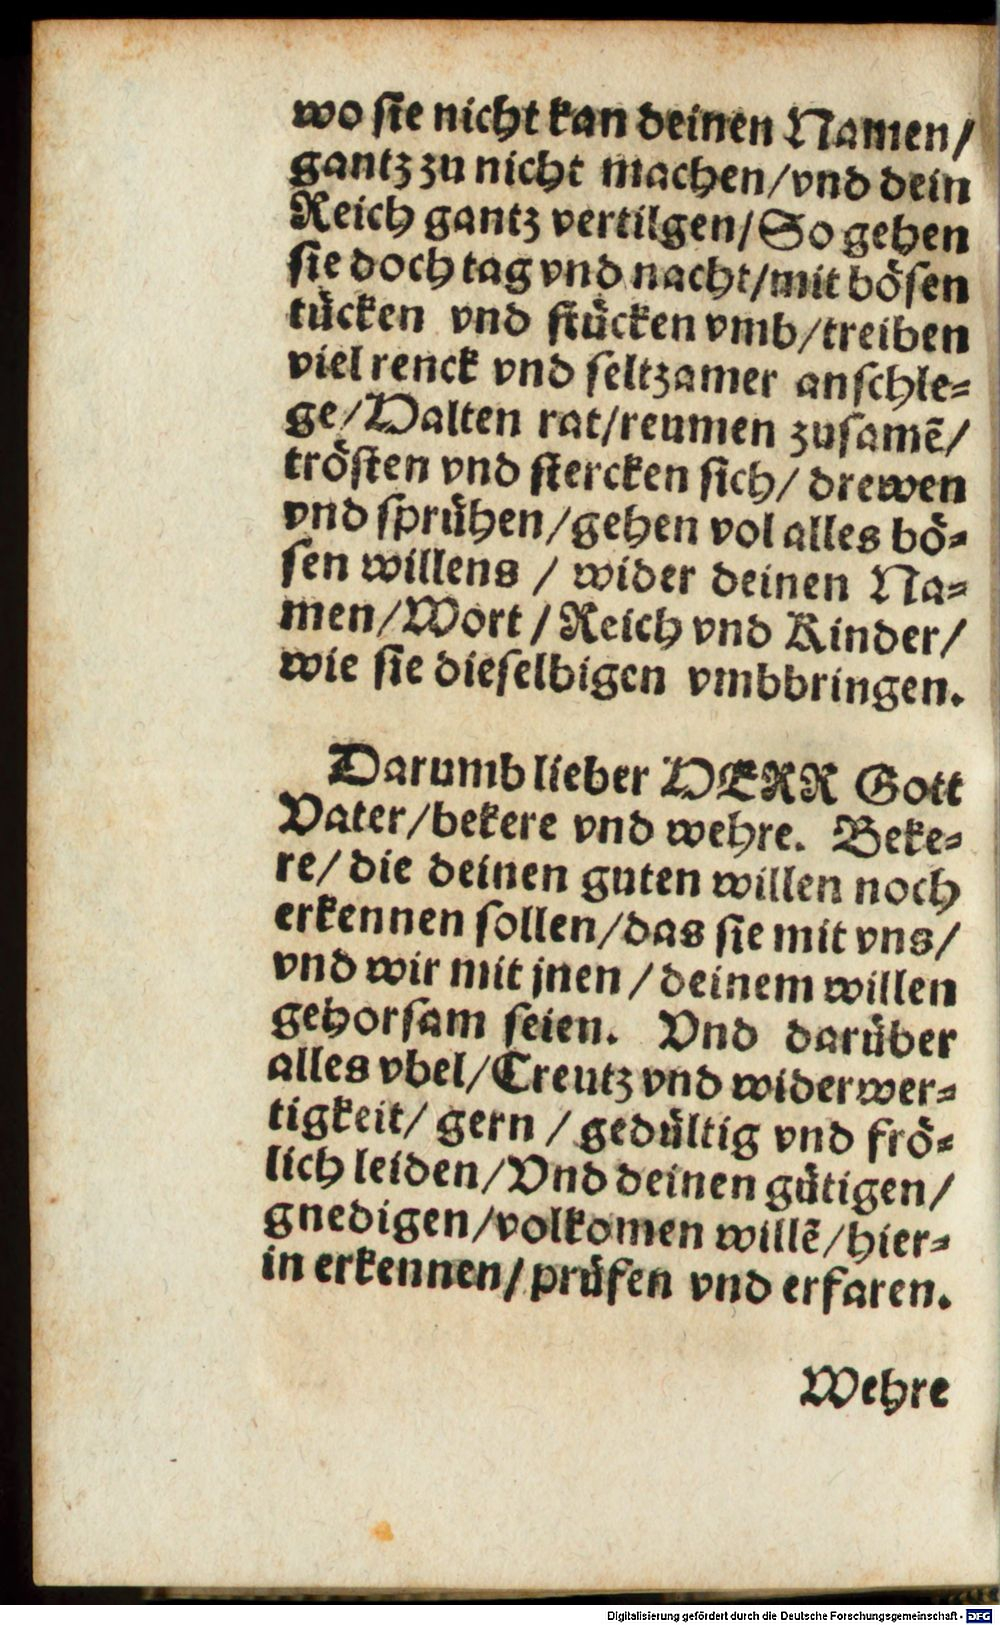 wo sie nicht kan deinen Namen/
gantz zu nicht machen/vnd dein
Reich gantz vertilgen/So gehen
sie doch tag vnd nacht/mit bösen
tücken vnd stücken vmb/treiben
viel renck vnd seltzamer anschle-
ge/Halten rat/reumen zusamẽ/
trösten vnd stercken sich/ drewen
vnd sprühen/gehen vol alles bö-
sen willens / wider deinen Na-
men/Wort / Reich vnd Kinder/
wie sie dieselbigen vmbbringen.
Darumb lieber HERR Gott
Vater/bekere vnd wehre. Beke-
re/ die deinen guten willen noch
erkennen sollen/das sie mit vns/
vnd wir mit jnen / deinem willen
gehorsam seien. Vnd darüber
alles vbel/Creutz vnd widerwer-
tigkeit/ gern / gedültig vnd frö-
lich leiden/Vnd deinen gütigen/
gnedigen/volkomen willẽ/hier-
in erkennen/prüfen vnd erfaren.
Wehre
Digitalisierung gefördert durch die Deutsche Forschungsgemeinschaft - DFG